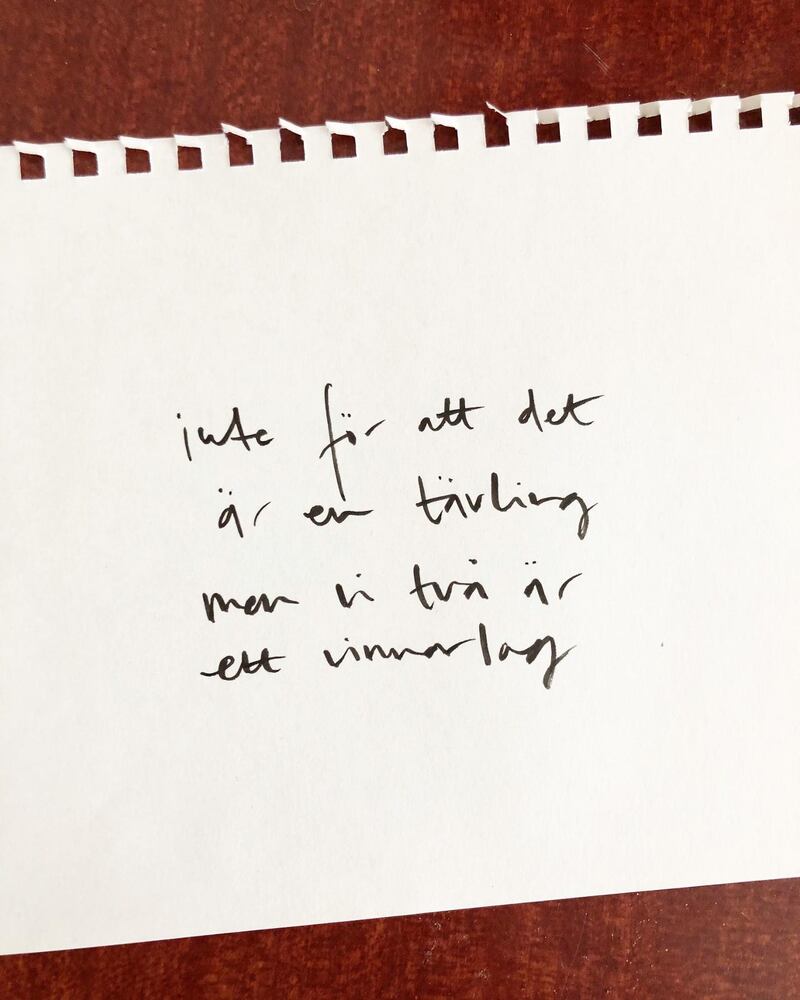 inte för att det
är en tävling
men vi två är
ett vinnarlag